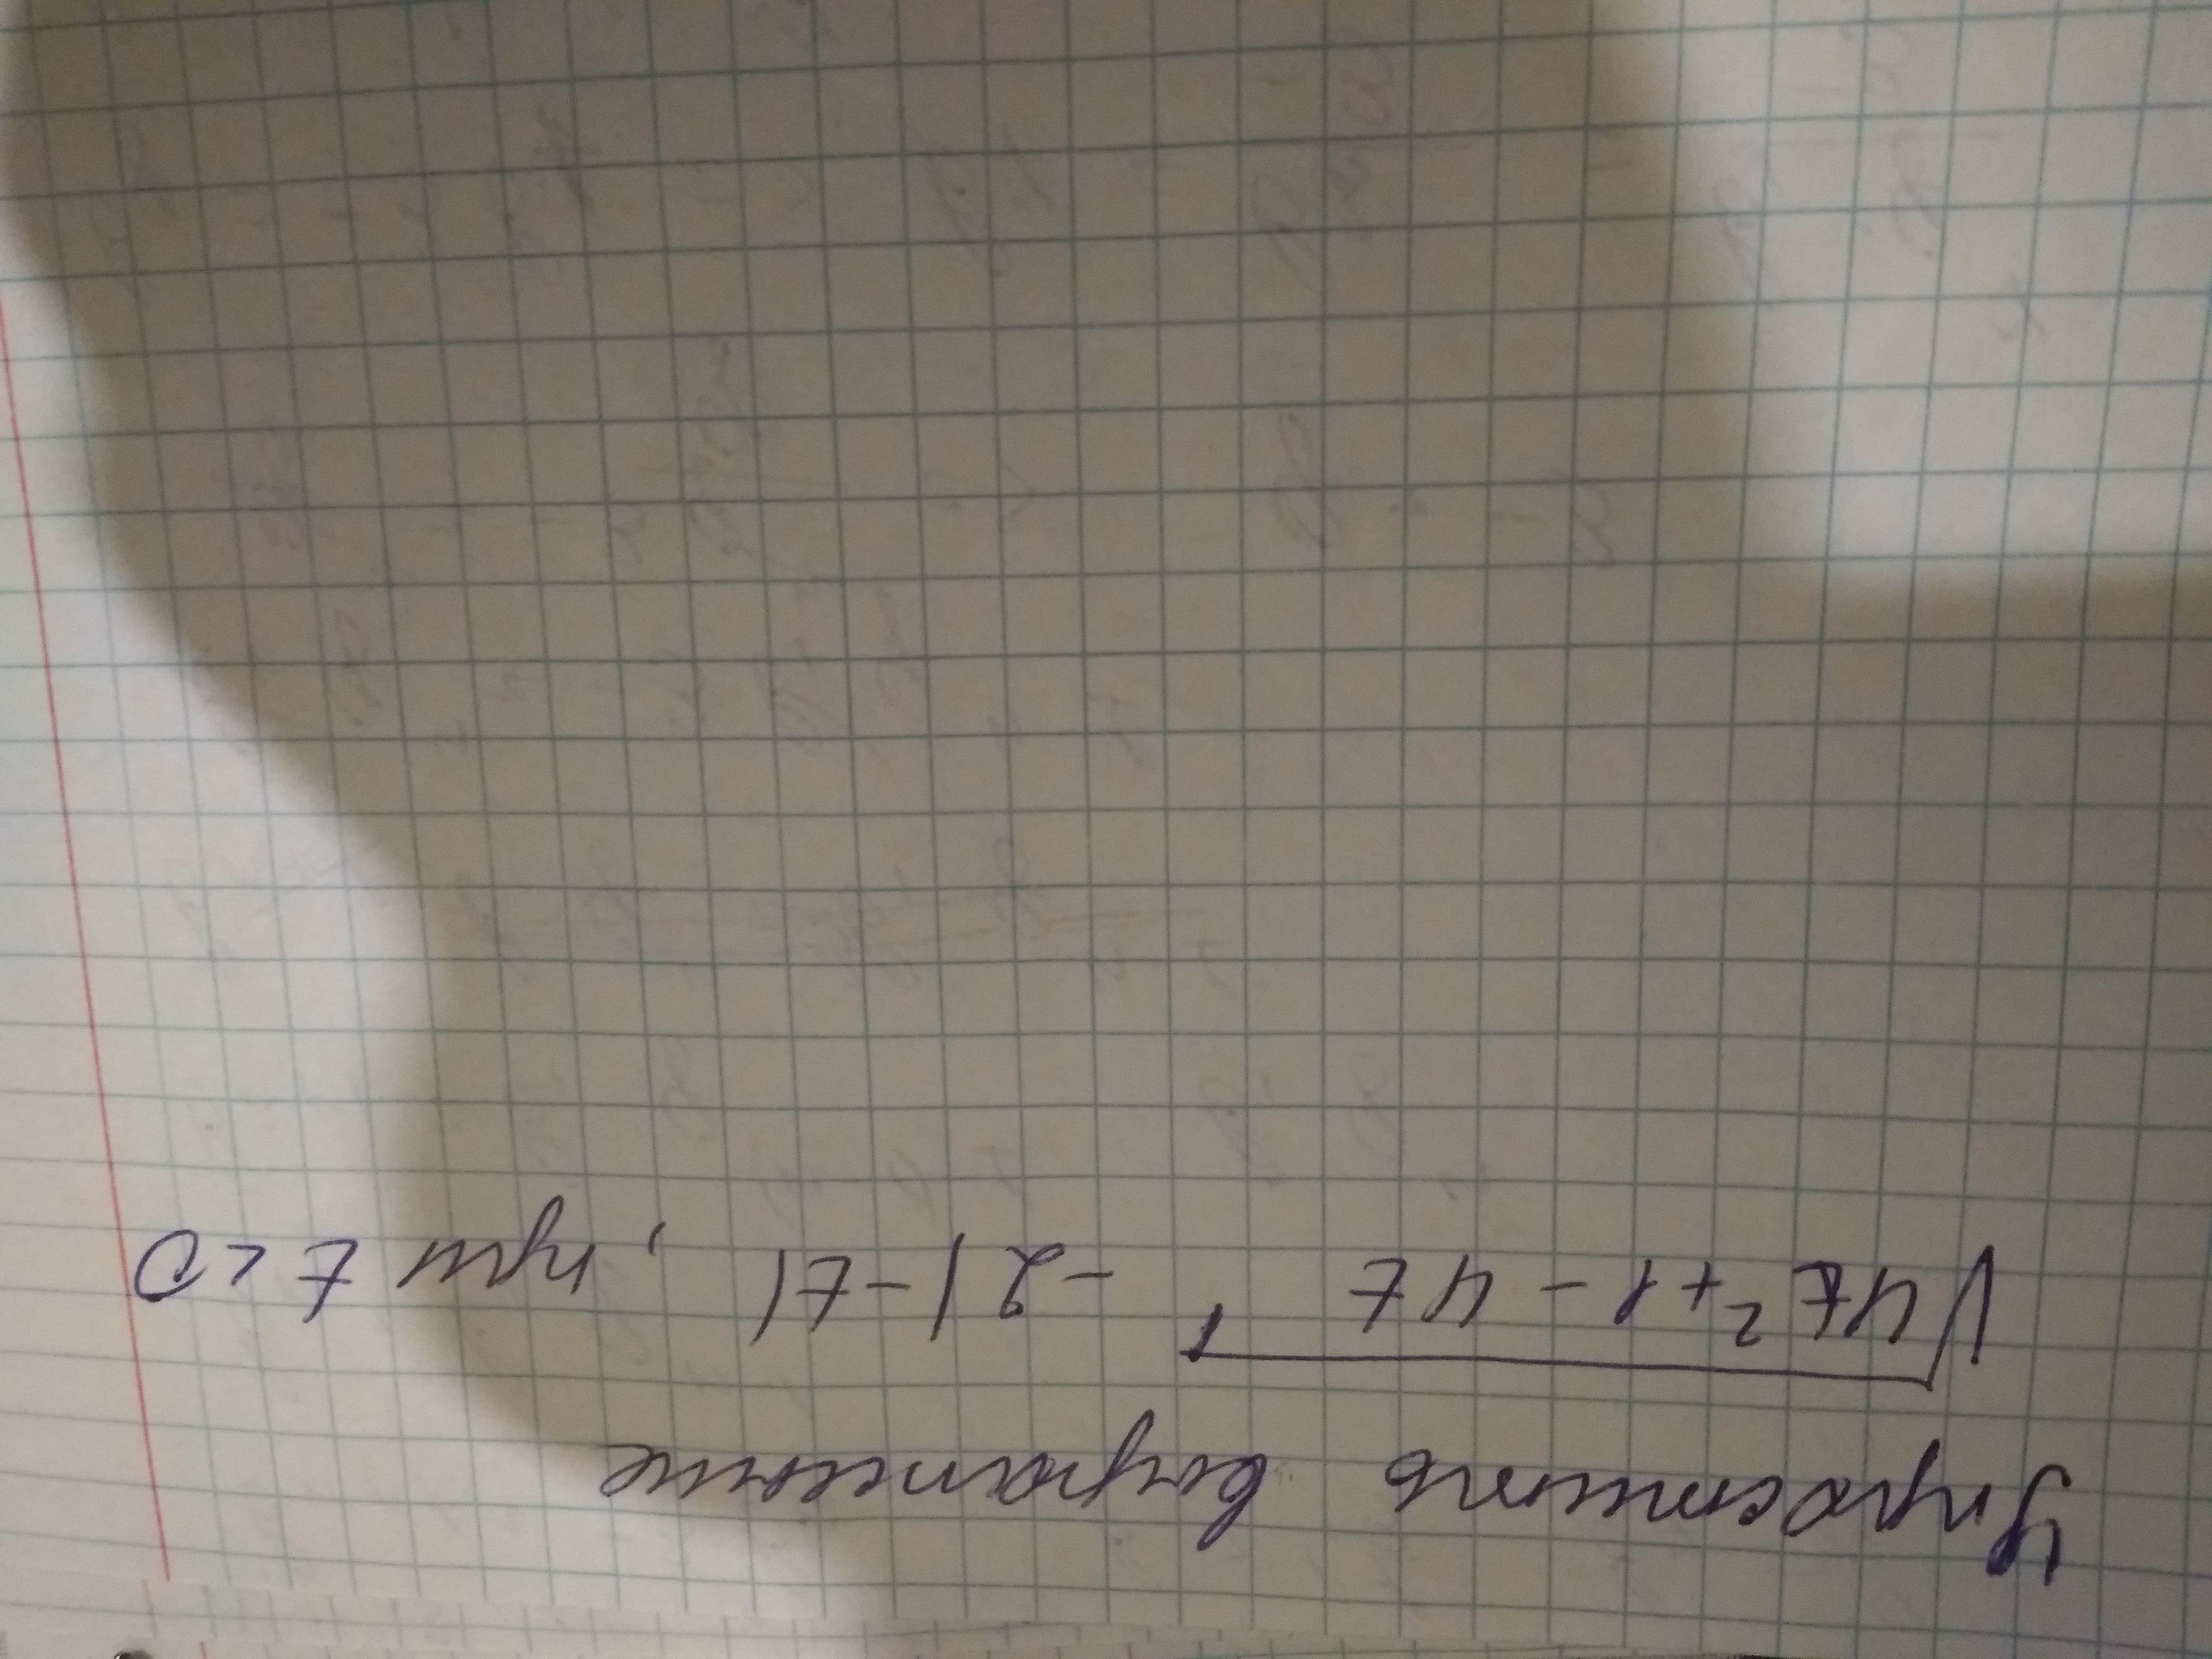 Упростить выражение
√4t²+1-4t -2|-t|, при t<0